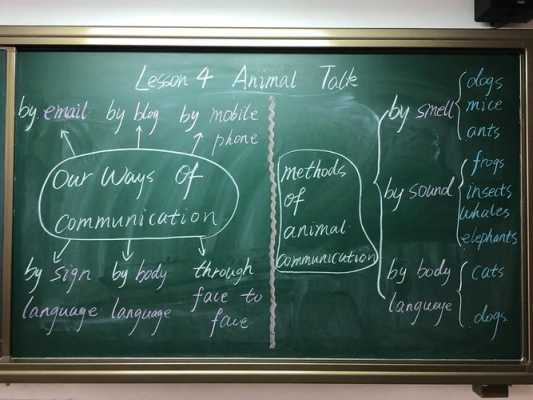 Lesson 4 Animal Talk
by email
by blog
by mobile
phone
Our Ways Of
Communication
by sign
language
by body
language
through
face to
face
methods
of
animal
communication
by smell
dogs
mice
ants
by sound
frogs
insects
whales
elephants
by body
language
cats
dogs